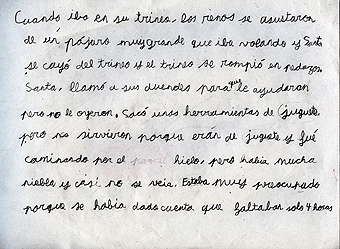 Cuando iba en su trineo, los renos se asustaron
de un pájaro muy grande que iba volando y Santa
se cayó del trineo y el trineo se rompió en pedazos.
Santa, llamó a sus duendes para que le ayudaran
pero no le oyeron. Sacó unas herramientas de juguete,
pero no sirvieron porque erán de juguete y fué
caminando por el hielo, pero había mucha
niebla y casi no se veia. Estaba muy preocupado
porque se había dado cuenta que faltaban solo 4 horas